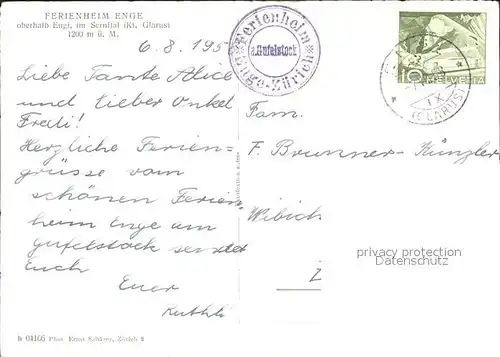 FERIENHEIM ENGE
oberhalb Engi, im Sernftal (Kt. Glarus)
1200 m ü. M.
Ferienheim
a. Gufelstock
Enge-Zürich
10 HELVETIA
IX
(GLARUS)
6.8.195
Liebe Tante Alice
und lieber Onkel
Fredi!
Herzliche Ferien-
grüsse vom
schönen Ferien-
heim Enge am
Gufelstock sendet
Euch
Euer
Ruthli
Fam.
F. Brunner-Künzler
Wibich
Z
privacy protection
Datenschutz
B 04166 Phot. Ernst Schärer, Zürich 2